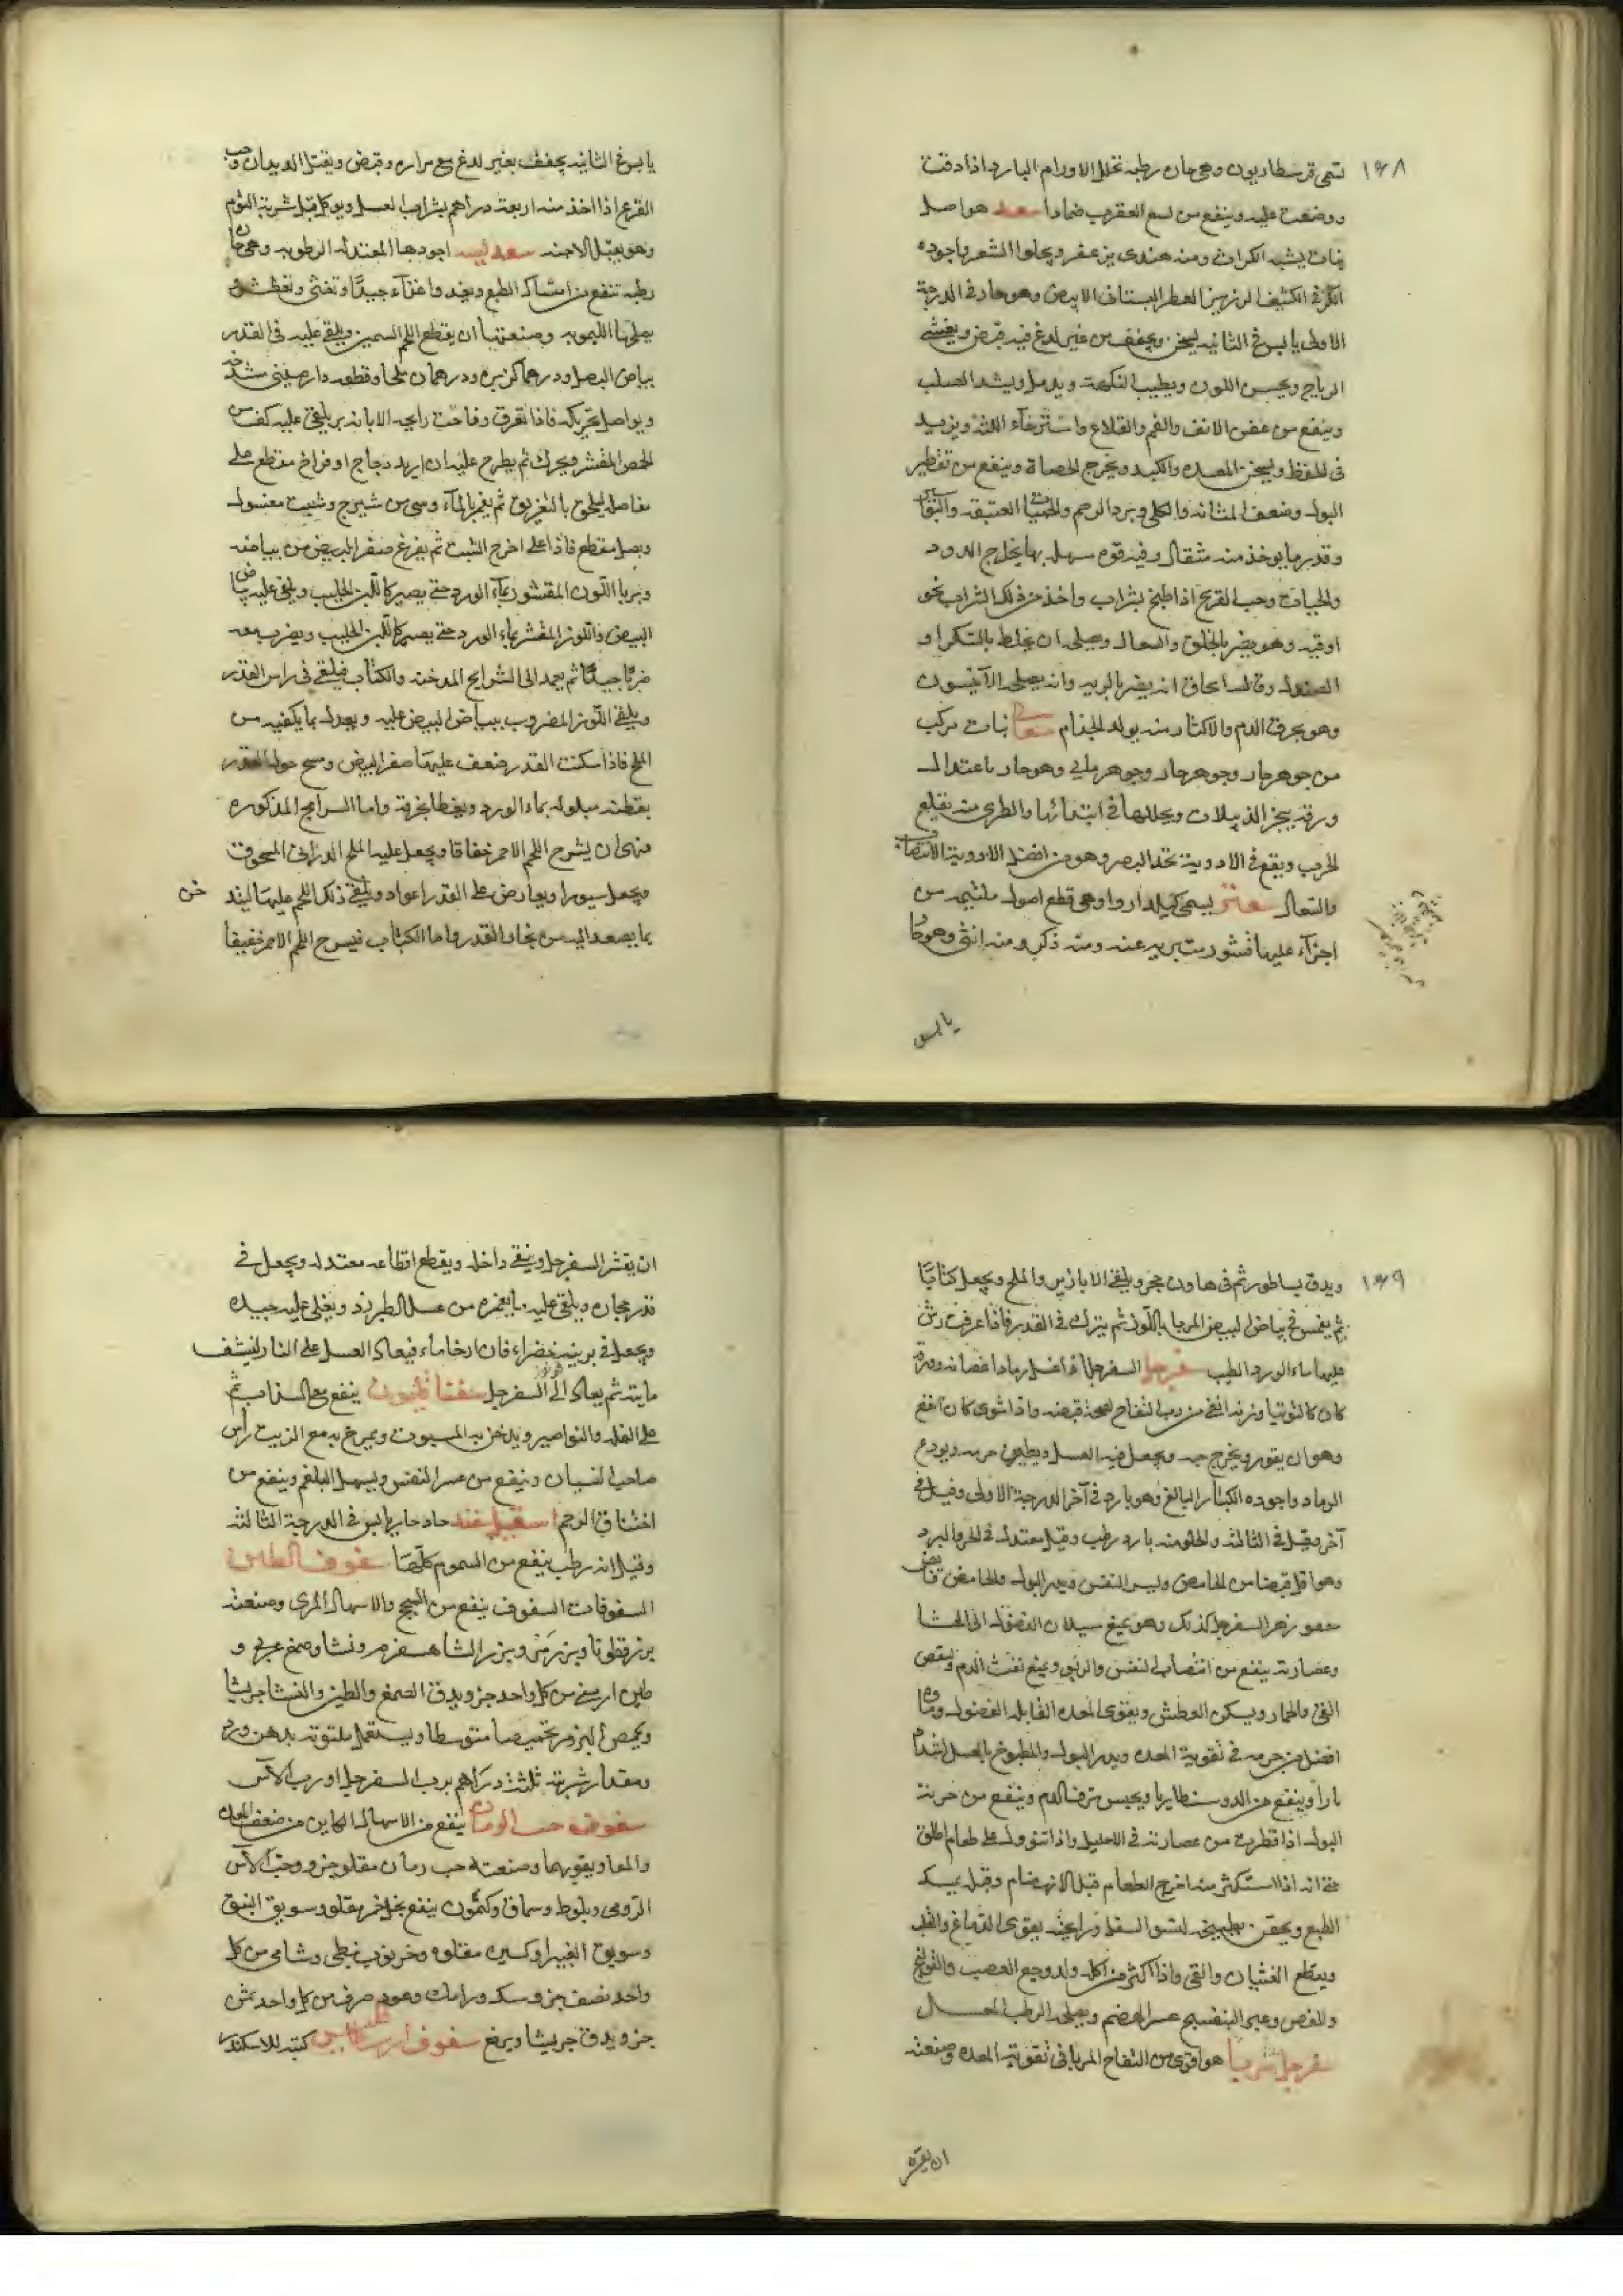 ١٤٨
تسمى قرسطاريون وهى حاره رطبه تحلل الاورام البارده اذا دقت
ووضعت عليه وينفع من لسع العقرب ضمادا سعد هو اصل
نبات يشبه الكراث ومنه هندى يزعفر ويحلوا الشعر واجوده
الكثيف الرزين العطر البستانى الابيض وهو حار فى الدرجة
الاولى يابس فى الثانيه يسخن ويجفف من غير لدغ فيه قبض ويفشى
الرياح ويحسن اللون ويطيب النكهة ويدمل ويشد الصلب
وينفع من عفن الانف والفم والقلاع واسترخاء اللثه ويزيد
فى الحفظ ويسخن المعده والكبد ويخرج الحصاة وينفع من تقطير
البول وضعف المثانه والكلى وبرد الرحم والحميات العتيقه والبواسير
وقدر ما يوخذ منه مثقال وفيه قوه مسهله بها يخرج الدود
والحيات وحب القرع اذا طبخ بشراب واخذ من ذلك الشراب نحو
اوقيه وهو يضر بالحلق والسعال ويصلحه ان يخلط بالسكر او
الصندل وقال اسحاق انه يضر بالريه وانه يصلحه الآنيسون
وهو يحرق الدم والاكثار منه يولد الجذام نبات مركب
من جوهر حار وجوهر حار وجوهر مايى وهو حار باعتدال
ورقه يفجر الدبيلات ويحللها فى ابتدائها والطرى منه يقلع
الجرب ويقع فى الادوية تحد البصر وهو من افضل الادوية
والسعال يسمى كيلدارو وهى قطع اصول ملتئمه من
اجزاء عليها قشور ومنه ذكر ومنه انثى وهو حار
يابس
يابس فى الثانيه يجفف بغير لدغ مع مراره وقبض ويقتل الديدان وحب
القرع اذا اخذ منه اربعة دراهم بشراب العسل ويوكل قبل شربه الثوم
وهو يقتل الاجنه اجودها المعتدله الرطوبه وهى حاره
رطبه تنفع من امساك الطبع وتغدوا غذآء جيدًا وتغثى وتعطش و
يصلحها الليمويه وصنعتها ان يقطع اللحم السمين ويلقى عليه فى القدر
بياض البصل ودرهما كزبره ودرهمان ملحا وقطعه دارصينى
ويواصل تحريكه فاذا تعرق وفاحت رايحه الابازير يلقى عليه كف من
الحمص المقشر ويحرك ثم يطرح عليه ان اريد دجاج او فراخ مقطع على
مفاصله ليلحق بالتعريق ثم يغمر بالمآء وسى من شيرج وشبت مغسول
وبصل مقطع فاذا غلى اخرج الشبت ثم يفرغ صفر البيض من بياضه
ويربا اللوز المقشور بمآء الورد حتى يصير كاللبن الحليب ويلقى عليه بياض
البيض واللوز المقشر بماء الورد حتى يصير كاللبن الحليب ويضرب معه
ضربا جيدًا ثم يعمد الى الشرايح المدخنه والكتاب فيلقى فى راس القدر
ويلقى اللوز المضروب ببياض البيض عليه ويعدل بما يكفيه من
الملح فاذا سكنت القدر ضعف عليها صفر البيض ومسح حول القدر
بقطنه مبلوله بماء الورد ويغطا بخرقة واما الشرايح المذكوره
فهى ان يشرح اللحم الاحمر خفافا ويجعل عليه الملح الدرانى المسحوق
ويجعل سيورا ويعارض على القدر اعواد ويلقى ذلك اللحم عليها ليند خن
بما يصعد اليه من بخار القدر واما الكباب فيسرح اللحم الاحمر خفيفا
١٤٩
ويدق بساطور ثم فى هاون حجر ويلقى الابازير والملح ويجعل كبابا
ثم يغمس فى بياض البيض المربا باللوز ثم يترك فى القدر فاذا عرقت رش
عليها ماء الورد الطيب سفرجل السفرجل اذا غسل رماد اغصانه وورقه
كان كالتوتيا وربه انفع من رب التفاح لصحة قبضه واذا شوى كان انفع
وهو ان يقور ويخرج حبه ويجعل فيه العسل ويطين جرمه ويودع
الرماد واجوده الكبار البالغ وهو بارد فى آخر الدرجة الاولى وقيل فى
آخر وقيل فى الثالثه والحلو منه بارد رطب وقيل معتدل فى الحر والبرد
وهو اقل قبضا من الحامض ويسر النفس ويدر البول والحامض قابض
مقو زهر السفرجل كذلك وهو يمنع سيلان الفضول الى الحشا
وعصارته ينفع من انتصاب النفس والربو ويمنع نفث الدم وينقص
القى والخمار ويسكن العطش ويقوى المعده القابله الفضول وماوه
افضل من جرمه فى تقوية المعده ويدر البول والمطبوخ بالعسل اشد
ادرارا وينفع من الدوسنطاريا ويحبس نزف الدم وينفع من حرقة
البول اذا قطرت من عصارته فى الاحليل واذا تنوول على طعام اطلق
حتى انه اذا استكثر منه اخرج الطعام قبل الانهضام وقبله يمسك
الطبع ويحقن بطبيخه لنتو السفل ورايحته يقوى الدماغ والقلب
ويقطع الغثيان والقى واذا اكثر من اكله ولد وجع العصب والقولنج
والمغص وعبر البنفسج عسر الهضم ويصلحه الرطب العسل
سفرجل مربا هو اقوى من التفاح المربا فى تقوية المعده وصنعته
ان يقشر
ان يقشر السفرجل وينقى داخله ويقطع اقطاعه معتدله ويجعل فى
قدر حجاره ويلقى عليه ما يغمره من عسل الطبرزد ويغلى عليه جيده
ويجعل فى برنيه خضراء فان ارخا ماء فيعاد العسل على النار لينشف
مايته ثم يعاد الى السفرجل ينفع مع السذاب ثم
على القلب والنواصير ويدخن به المسبوت ويمرخ به مع الزيت رأس
صاحب النسيان وينفع من عسر النفس ويسهل البلغم وينفع من
اختناق الرحم حاد حار يابس فى الدرجة الثالثه
وقيل انه رطب ينفع من السموم كلها سفوف الطين
السفوفات السفوف ينفع من السحج والاسهال المرى وصنعته
بزر قطونا وبزر مرو وبزر الشاهسفرم ونشا وصمغ عربى و
طين ارمينى من كل واحد جزو يدق الصمغ والطين والنشا جريشا
ويحمص البزور تحميصا متوسطا ويستعمل ملتوته بدهن ورد
ومقدار شربته ثلثة دراهم برب السفرجل او رب الآس
سفوف حب الرمان ينفع من الاسهال الكاين من ضعف المعده
والمعا ويقويهما وصنعته حب رمان مقلو جزو وحب الآس
الرومى وبلوط وسماق وكمون ينقع بخل خمر مقلو وسويق النبق
وسويق الغبيرا وكسبره مقلوه وخرنوب نبطى وشامى من كل
واحد نصف جزو وسك ورامك وعود صرف من كل واحد ثمن
جزو يدق جريشا ويرفع سفوف ارسطاطاليس كتبه للاسكندر